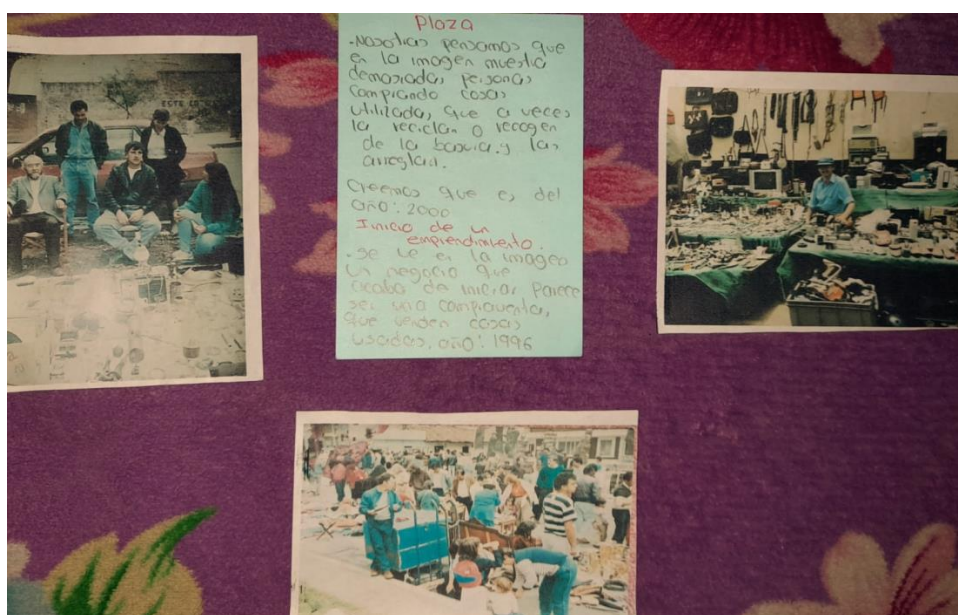 Plaza
.Nosotras pensamos que
en la imagen muestra
demasiadas personas
comprando cosas
utilizadas, que a veces
la reciclan o recogen
de la basura, y las
arreglan.
Creemos que es del
año: 2000
Inicio de un
emprendimiento.
-se ve en la imagen
un negocio que
acaba de iniciar, Parece
ser una compraventa,
que venden cosas
usadas, año: 1996
ESTE